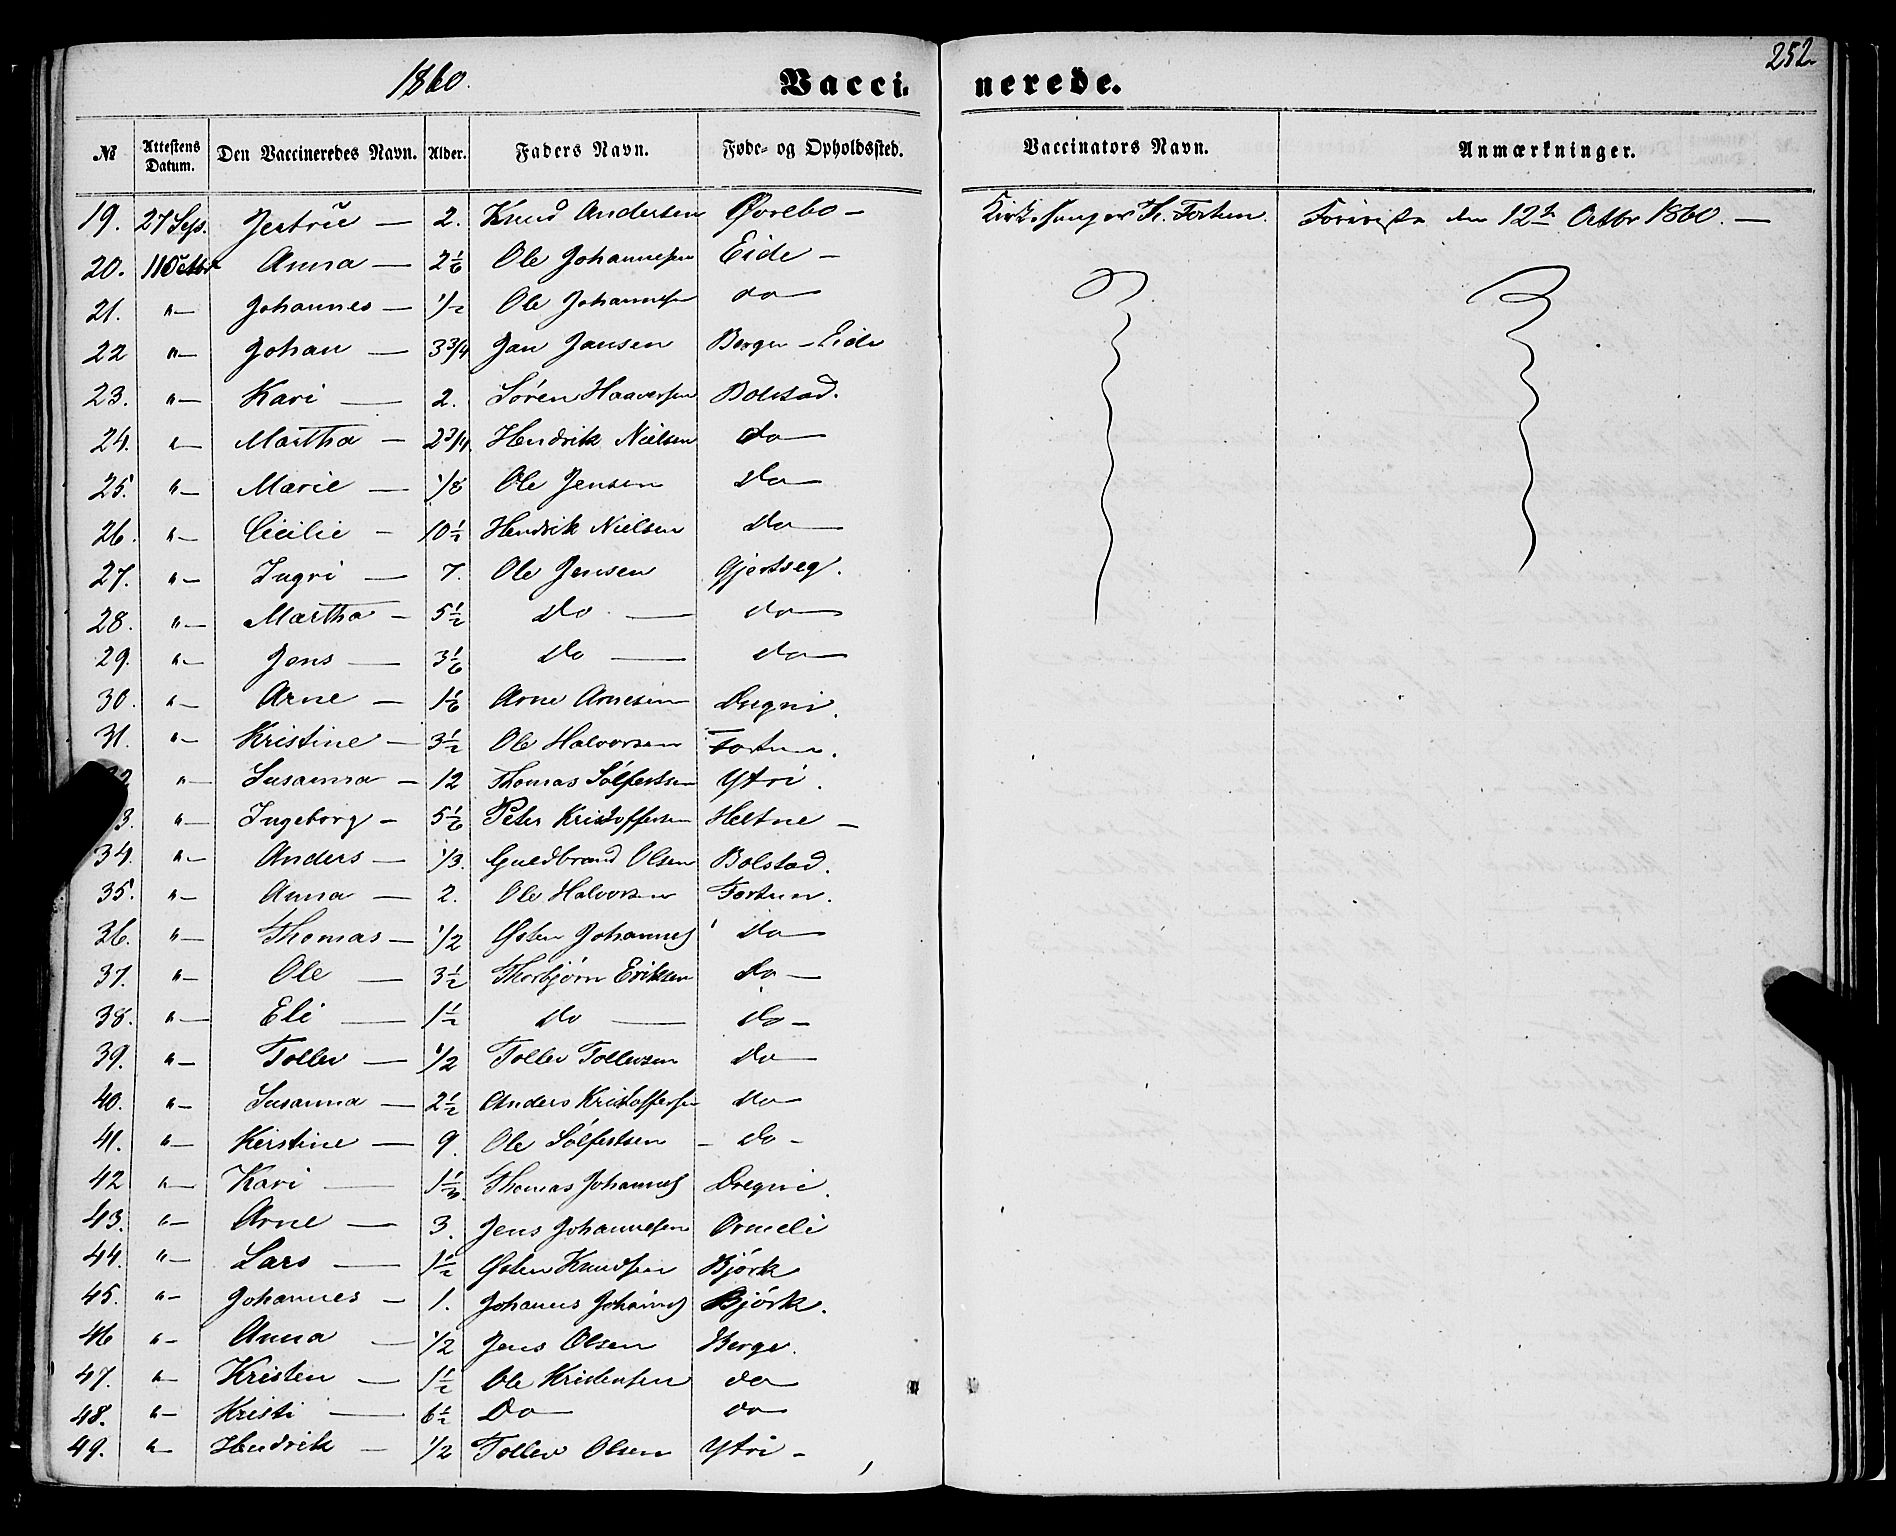 252.
1860.
Vacci-nerede.
№ Attestens Datum. Den Vaccineredes Navn. Alder. Faders Navn. Føde- og Opholdssted. Vaccinators Navn. Anmærkninger.
19. 27 Sept. Jertrü — 2. Knud Andersen Øvrebo — Kirkesanger Th. Fortun. den 12te Octbr 1860. —
20. 11 Octbr Anna — 2 1/6 Ole Johannesen Eide —
21. "— Johannes — 1/2 Ole Johannesen do —
22 "— Johan — 3 3/4 Jan Jansen Berge — Eide
23. "— Kari — 2. Sören Haaversen Bolstad.
24. "— Martha — 2 3/4. Hendrik Nielsen do —
25. "— Marie — 1/8 Ole Jensen do —
26. "— Cicilie — 10 1/2 Hendrik Nielsen do —
27. "— Ingri — 7. Ole Jensen Gjertseg.
28. "— Martha — 5 1/2 do — do —
29. "— Jens — 3 1/6 do — do —
30. "— Arne — 1 1/6 Arne Arnesen Dregni.
31. "— Kristine — 3 1/2 Ole Halvorsen Fortun.
"— Susanna — 12 Thomas Sölfestsen Ytri.
3. "— Ingeborg — 5 1/6 Peter Kristoffersen Heltne —
34. "— Anders — 1/3. Guldbrand Olsen Bolstad.
35. "— Anna — 2. Ole Halvorsen Fortun.
36. "— Thomas — 1/2 Østen Johannes do —
37. "— Ole — 3 1/2 Thorbjörn Eriksen do —
38. "— Eli — 1 1/2 do — do —
39. "— Tollev — 1/2 Tollev Tollevsen do —
40. "— Susanna — 2 1/2 Anders Kristoffersen do —
41. "— Kirstine — 9. Ole Sölfestsen — do —
42 "— Kari — 1 1/3. Thomas Johannes Dregni.
43. "— Arne — 3. Jens Johannesen Ormeli
44. "— Lars — 1 1/2 Østen Knudsen Björk
45. "— Johannes — 1. Johannes Johannes Björk.
46 "— Anna — 1/2 Jens Olsen Berge.
47. "— Kristen — 1 1/2 Ole Kristensen do —
48. "— Kristi — 6 1/2 Do — do —
49. "— Hendrik — 1/2 Tollev Olsen Ytri —